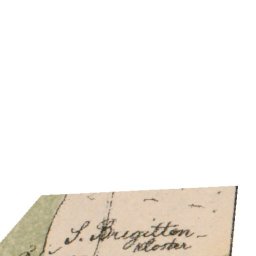 S. Brigitten-
kloster